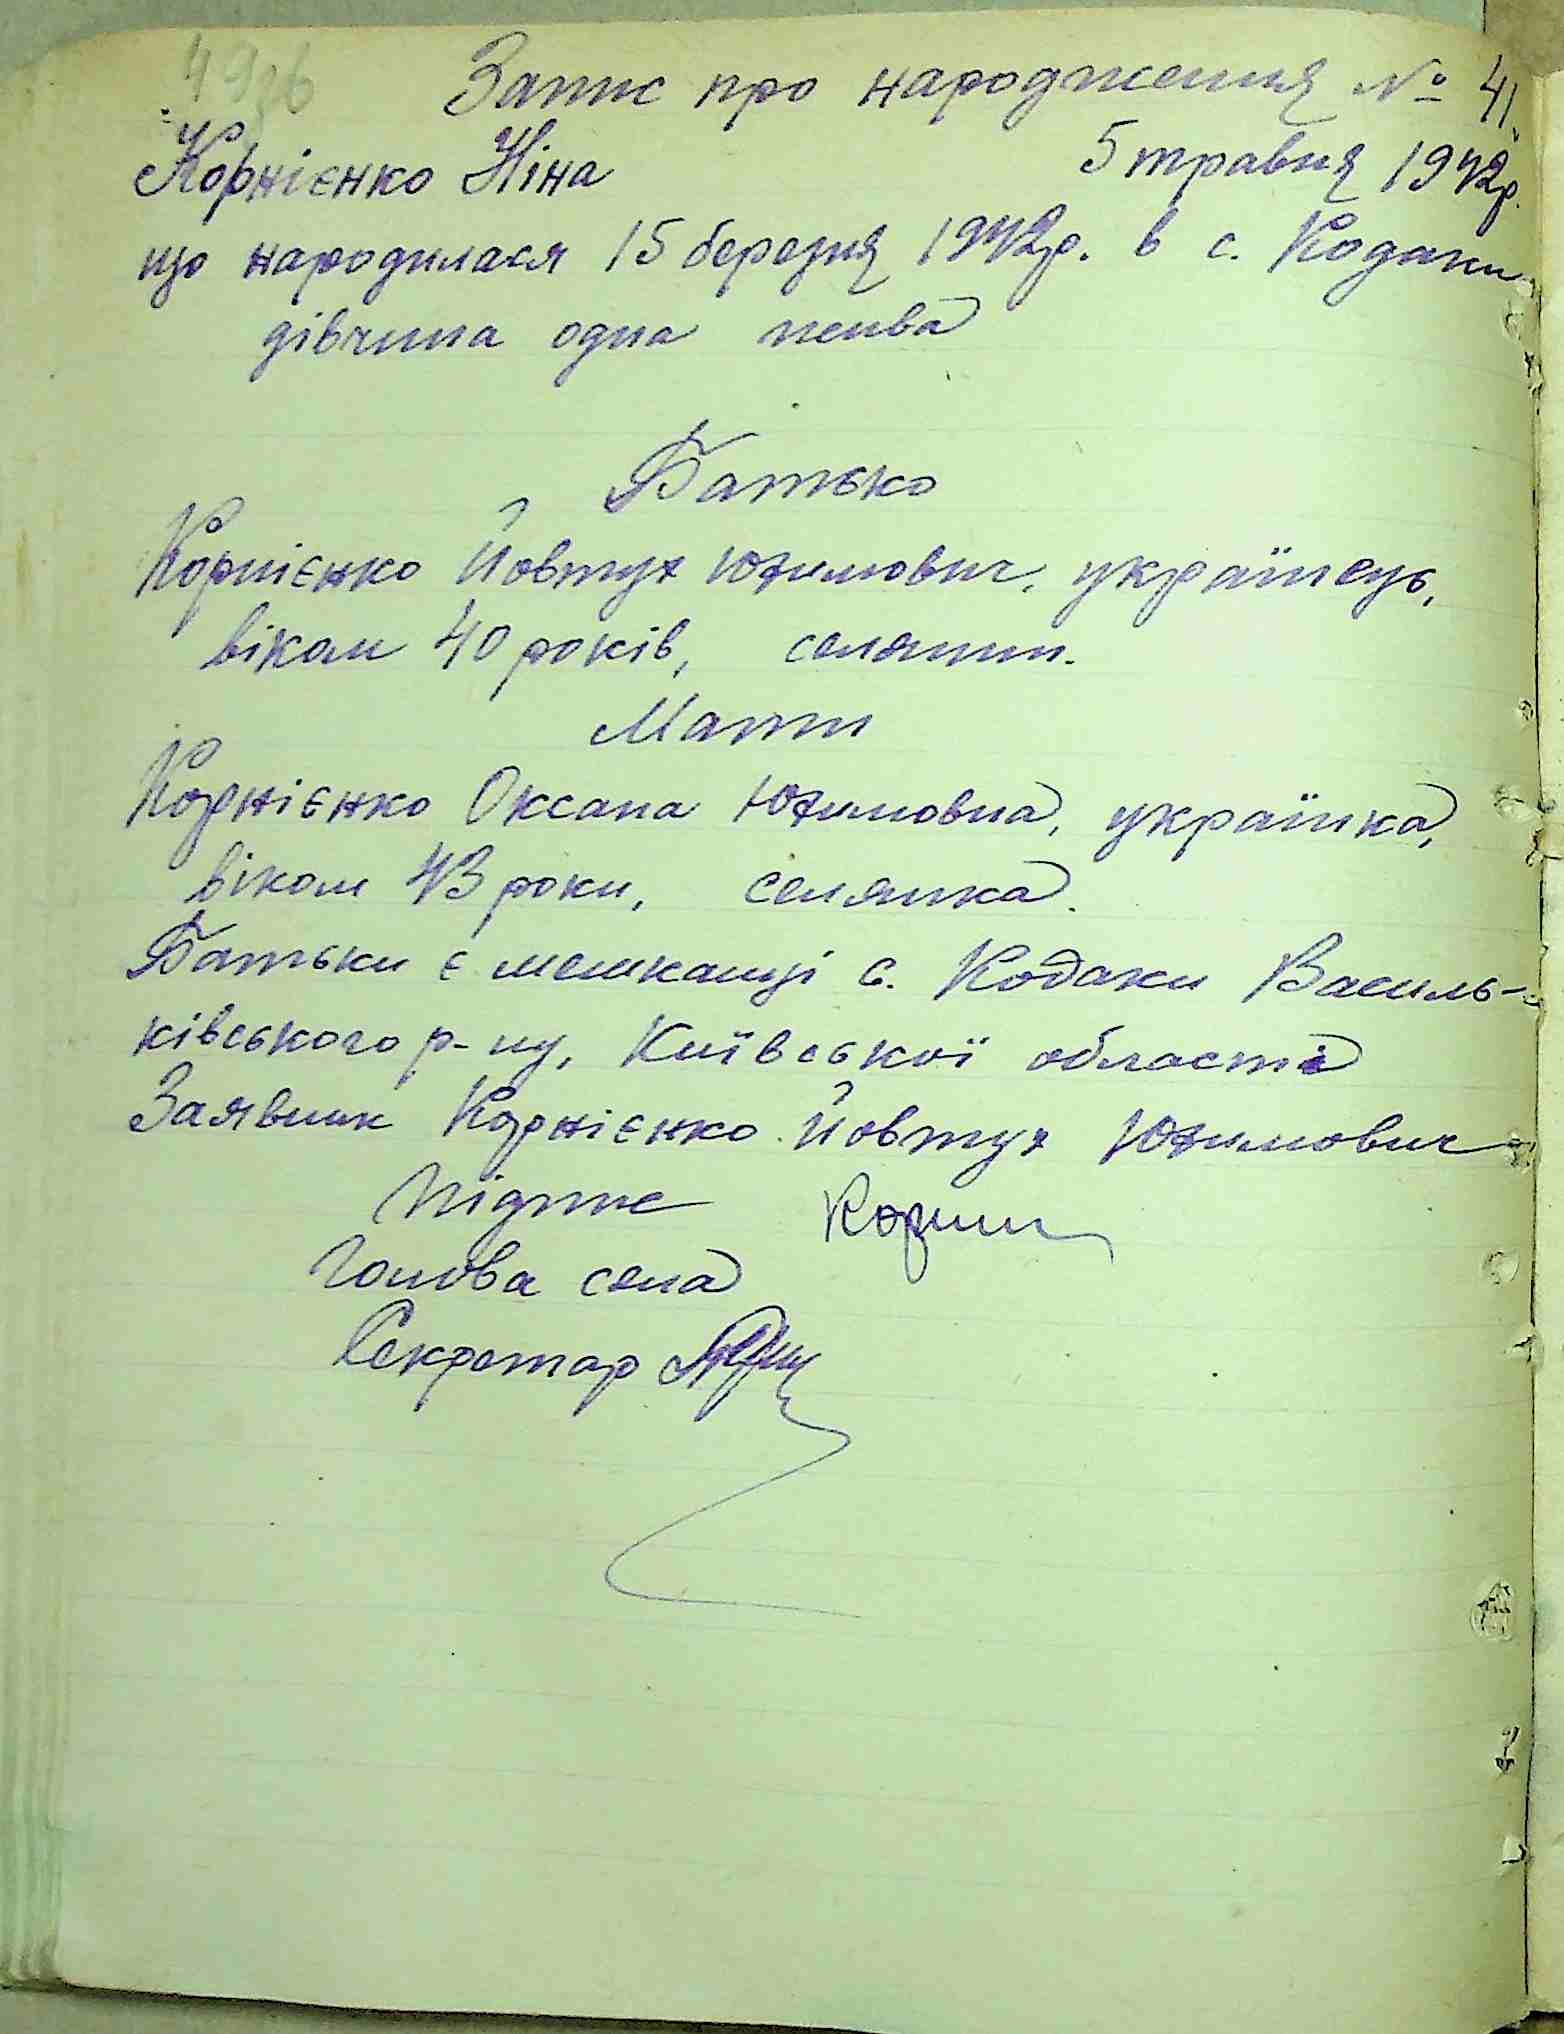 49зв
Запис про народження № 41.
Корнієнко Ніна 5 травня 1942р.
що народилася 15 березня 1942р. в с. Кодаки
дівчина одна жива
Батько
Корнієнко Йовтух Юхимович, українець,
віком 40 років, селянин.
Мати
Корнієнко Оксана Юхимовна, українка,
віком 43 роки, селянка.
Батьки є мешканці с. Кодаки Василь-
ківського р-ну, Київської області
Заявник Корнієнко Йовтух Юхимович
Підпис Корни
Голова села
Секретар